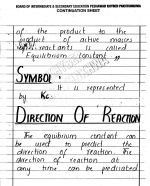 BOARD OF INTERMEDIATE & SECONDARY EDUCATION PESHAWAR
CONTINUATION SHEET
of the product to the
product of active masses
of reactants is called
Equilibrium constant
SYMBOL:
It is represented
by Kc.
DIRECTION OF REACTION
The equibrium constant can
be used to predict the
direction of reaction. The
direction of reaction at
any time can be predicated